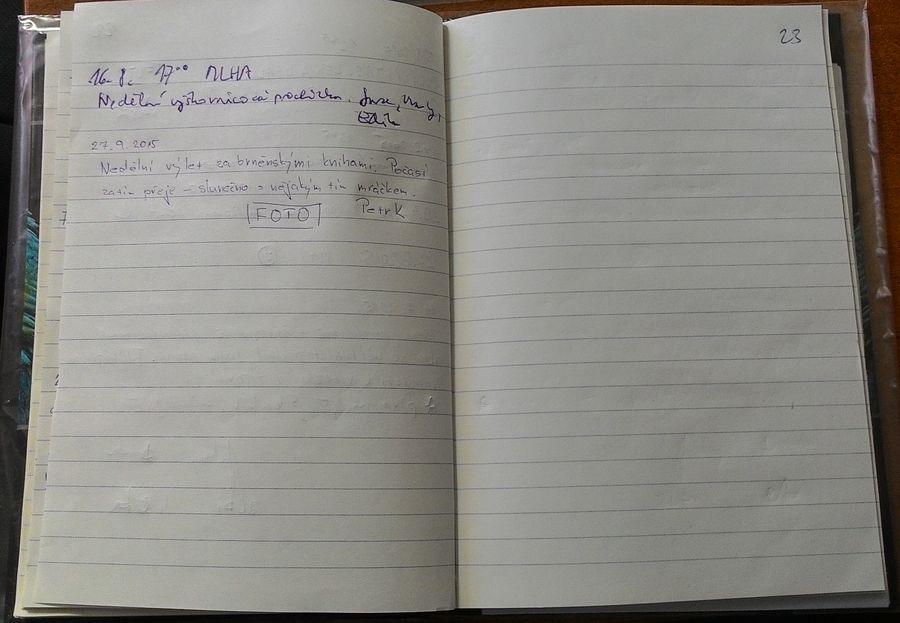 16. 8. 17⁰⁰ MLHA
Nedělní procházka.
27. 9. 2015
Nedělní výlet za brněnskými knihami. Počasí
zatím přeje – slunečno s nějakým tím mráčkem.
FOTO Petr K
23